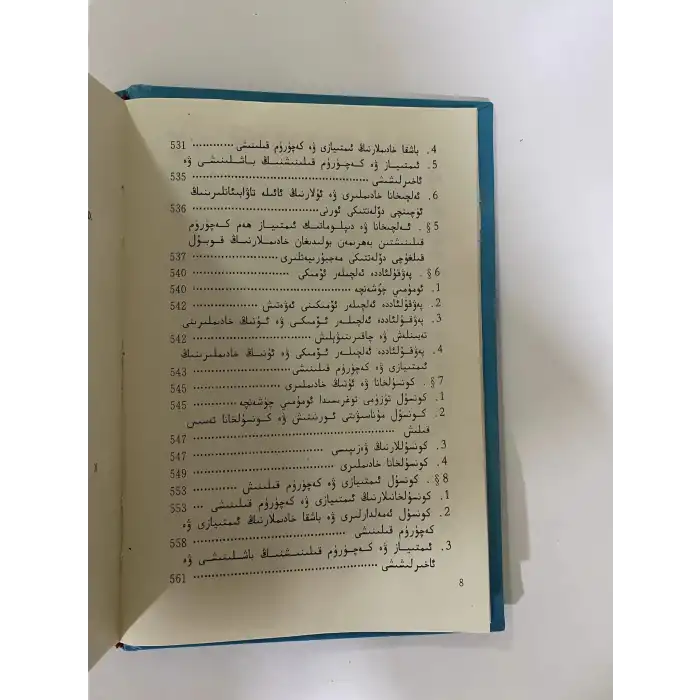 4. باشقا خادىملارنىڭ ئىمتىيازى ۋە كەچۈرۈم قىلىنىشى ············ 531
5. ئىمتىياز ۋە كەچۈرۈم قىلىنىشنىڭ باشلىنىشى ۋە
ئاخىرلىشىشى ············ 535
6. ئەلچىخانا خادىملىرى ۋە ئۇلارنىڭ ئائىلە تاۋابىئاتلىرىنىڭ
ئۈچىنچى دۆلەتتىكى ئورنى ············ 536
§5. ئەلچىخانا ۋە دىپلوماتىك ئىمتىياز ھەم كەچۈرۈم
قىلىنىشتىن بەھرىمەن بولىدىغان خادىملارنىڭ قوبۇل
قىلغۇچى دۆلەتتىكى مەجبۇرىيەتلىرى ············ 537
§6. پەۋقۇلئاددە ئەلچىلەر ئۆمىكى ············ 540
1. ئومۇمىي چۈشەنچە ············ 540
2. پەۋقۇلئاددە ئەلچىلەر ئۆمىكىنى ئەۋەتىش ············ 542
3. پەۋقۇلئاددە ئەلچىلەر ئۆمىكى ۋە ئۇنىڭ خادىملىرىنى
تەيىنلەش ۋە چاقىرتىۋېلىش ············ 542
4. پەۋقۇلئاددە ئەلچىلەر ئۆمىكى ۋە ئۇنىڭ خادىملىرىنىڭ
ئىمتىيازى ۋە كەچۈرۈم قىلىنىشى ············ 543
§7. كونسۇلخانا ۋە ئۇنىڭ خادىملىرى ············ 545
1. كونسۇل تۈزۈمى توغرىسىدا ئومۇمىي چۈشەنچە ············ 545
2. كونسۇل مۇناسىۋىتى ئورنىتىش ۋە كونسۇلخانا تەسىس
قىلىش ············ 547
3. كونسۇللارنىڭ ۋەزىپىسى ············ 547
4. كونسۇلخانا خادىملىرى ············ 549
§8. كونسۇل ئىمتىيازى ۋە كەچۈرۈم قىلىنىش ············ 553
1. كونسۇلخانىلارنىڭ ئىمتىيازى ۋە كەچۈرۈم قىلىنىشى ··· 553
2. كونسۇل ئەمەلدارلىرى ۋە باشقا خادىملارنىڭ ئىمتىيازى ۋە
كەچۈرۈم قىلىنىشى ············ 558
3. ئىمتىياز ۋە كەچۈرۈم قىلىنىشنىڭ باشلىنىشى ۋە
ئاخىرلىشىشى ············ 561
8